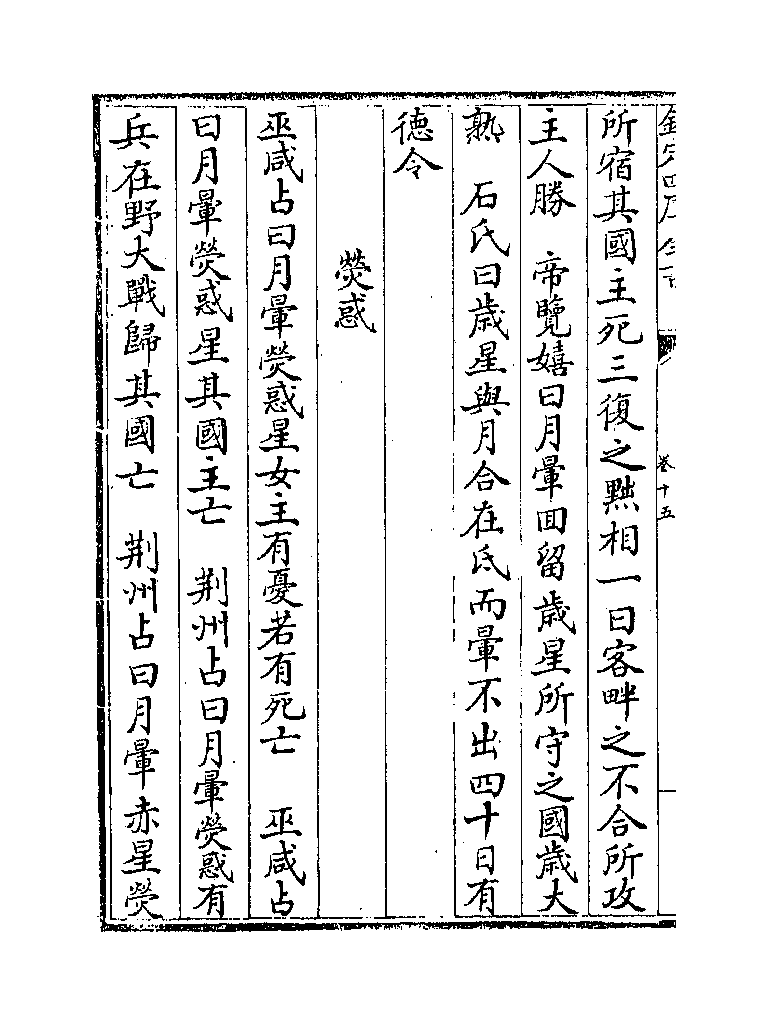 欽定四庫全書
卷十五
所宿其國主死三復之黜相一曰客畔之不合所攻
主人勝　帝覽嬉曰月暈回留歲星所守之國歲大
熟　石氏曰歲星與月合在氐而暈不出四十日有
德令
熒惑
巫咸占曰月暈熒惑星女主有憂若有死亡　巫咸占
曰月暈熒惑星其國主亡　荆州占曰月暈熒惑有
兵在野大戰歸其國亡　荆州占曰月暈赤星熒